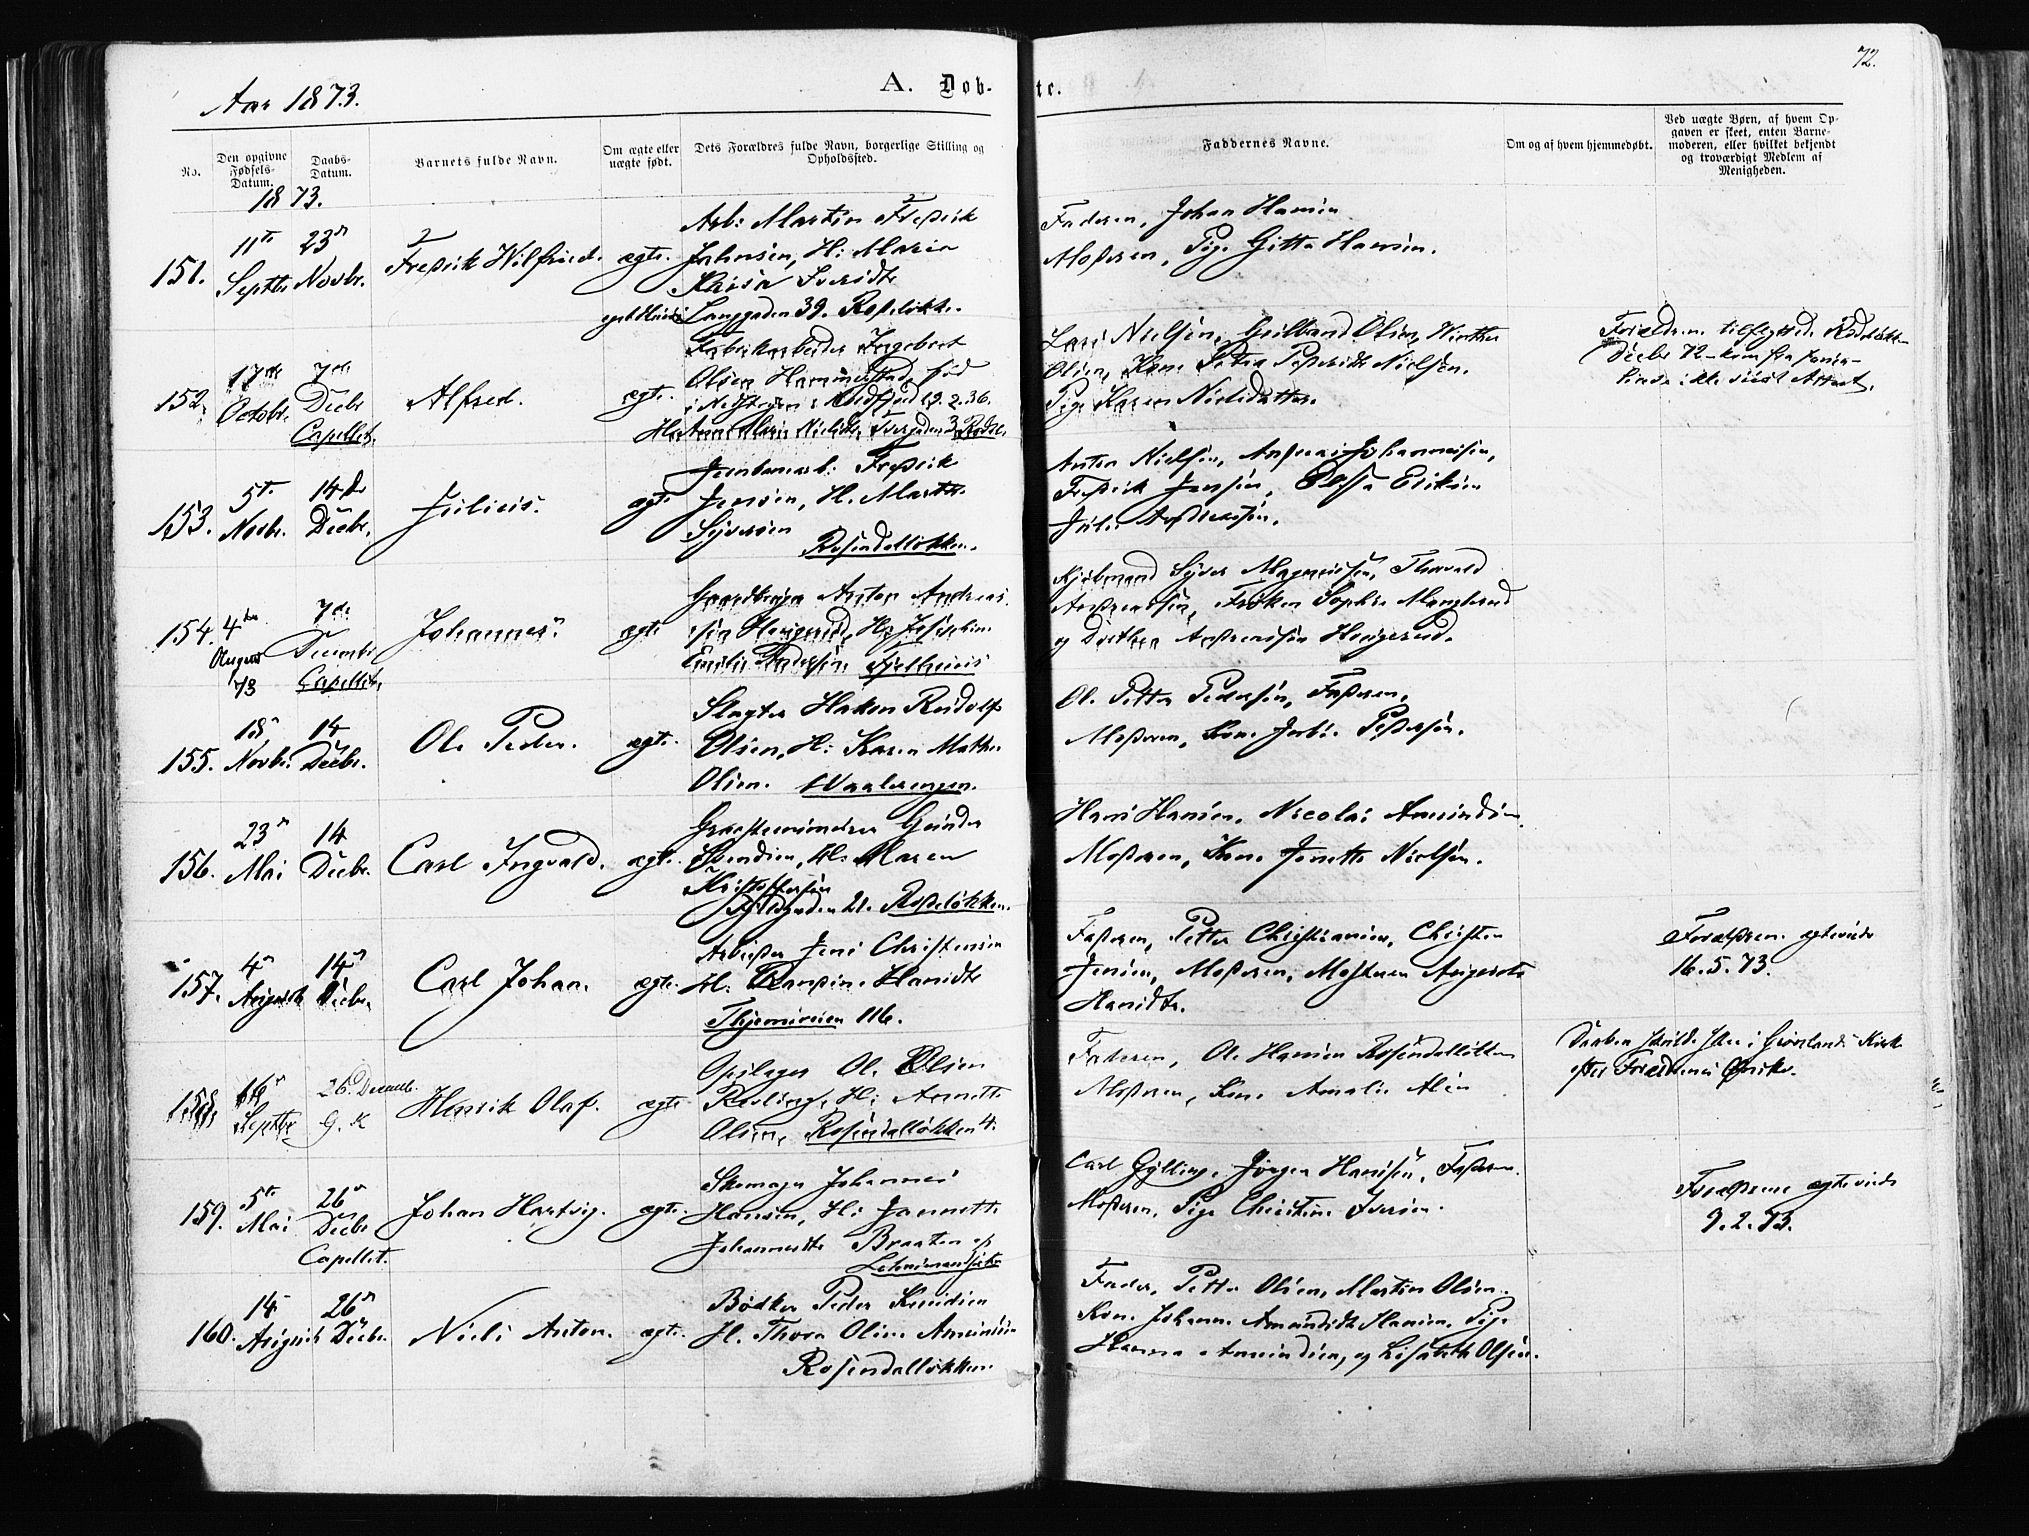 72.
Aar 1873.
A. Døb-
te.
No.
Den opgivne Fødsels-Datum.
Daabs-Datum.
Barnets fulde Navn.
Om ægte eller uægte født.
Dets Forældres fulde Navn, borgerlige Stilling og Opholdssted.
Faddernes Navne.
Om og af hvem hjemmedøbt.
Ved uægte Børn, af hvem Op-
gaven er skeet, enten Barne-
moderen, eller hvilket bekjendt
og troværdigt Medlem af
Menigheden.
1873.
151.
11te Septbr
23de Novbr.
Fredrik Wilfried.
ægte.
Arb: Martin Fredrik
Johnsen, H: Maria
Langgaden 39. Rodeløkk.
Faderen, Johan Hansen
Moderen, Pige Gitta Hansen.
152.
17de Octobr.
7de Decbr
Capellet.
Alfred.
ægte.
Fabrikarbeider Ingebret
Olsen Hammerstad, fød
i Nordfjord 19.2.36.
Lars Nielsen, Gulbrand Olsen, Winther
Olsen, Kone Petra Pedersdtr Nielsen.
Pige Karen Nielsdatter.
Forældrene tilflyttede Rodeløkk-
Decbr 72
153.
5te Novbr.
14de Decbr.
Julius.
ægte
Jernbanearb: Fredrik
Jensen, H. Marthe
Syversen
Rosendalløkken.
Anton Nielsen, Andreas Johannesen,
Fredrik Jensen, Elisa Eriksen
Julie Andreassen.
154.
4de August
73
7de Decembr
Capellet.
Johannes.
ægte
Gaardbruger Anton Andreas-
sen Haugerud, H: Josephine
Emilie Andersen, Fjelhuus
Kjøbmand Syver Magnussen, Thorvald
Andreassen, Frøken Sophie Manglerud
og Dorthea Andreassen Haugerud.
155.
18de Novbr.
14 Decbr.
Ole Peder.
ægte.
Slagter Haken Rudolf
Olsen, H: Karen Mathea
Olsen. Waalerengen.
Ole Petter Pedersen, Faderen,
Moderen, Kone Pedersen.
156.
23de Mai
14 Decbr.
Carl Ingvald.
ægte.
Svendsen, H: Maren
Kristoffersen
21. Rodeløkken.
Hans Hansen, Nicolai Amundsen
Moderen, Kone Jenette Nielsen.
157.
4de August
14de Decbr.
Carl Johan.
ægte.
Arbeider Jens Christensen
H: Hansdtr
116.
Faderen, Petter Christiansen, Christen
Jensen, Moderen, Mosteren Augusta
Hansdtr.
Forældrene ægteviede
16.5.73.
158.
16de Septbr
26 Decemb.
G. K
Henrik Olaf.
ægte
Opslager Ole Olsen
H: Annette
Olsen, Rosendalløkken 4.
Faderen, Ole Hansen Rosendalløkken
Moderen, Kone Amalie
Daaben skulde skee i Grønlands Kirke
efter Forældrenes Ønske.
159.
5te Mai
26de Decbr
Capellet.
Johan Hartvig.
ægte.
Skomager Johannes
Hansen, H: Jannette
Johannesdtr Braaten
Carl Gylling, Jørgen Hansen, Faderen
Moderen, Pige Christine Iversen.
Forældrene ægteviede
9.2.73.
160.
14 August
26de Decbr.
Niels Anton.
ægte.
Bødker Peder Knudsen
H. Thora Oline Amundsen
Rosendalløkken.
Fader, Petter Olsen, Martin Olsen.
Kone Johanne Amundsdtr Hansen, Pige
Hanna Amundsen, og Lisabeth Olsen.